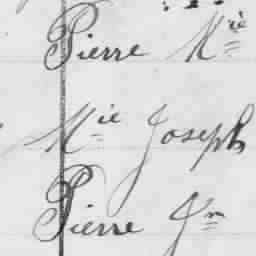 Pierre Mie
Mie Joseph
Pierre Jn